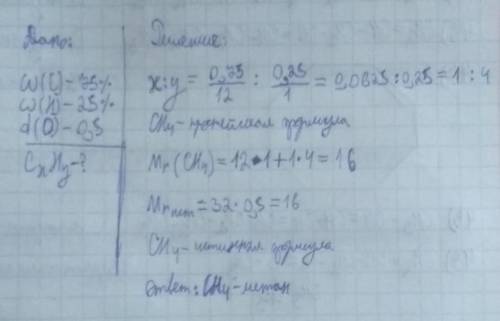 Дано:
ω(C) - 75%
ω(H) - 25%
d(O) - 0,5
CxHy - ?
Решение:
x:y = 0,75/12 : 0,25/1 = 0,0625:0,25 = 1:4
CH4 - простейшая формула
Mr(CH4) = 12•1+1•4 = 16
Mr ист = 32•0,5 = 16
CH4 - истинная формула
ответ: CH4 - метан